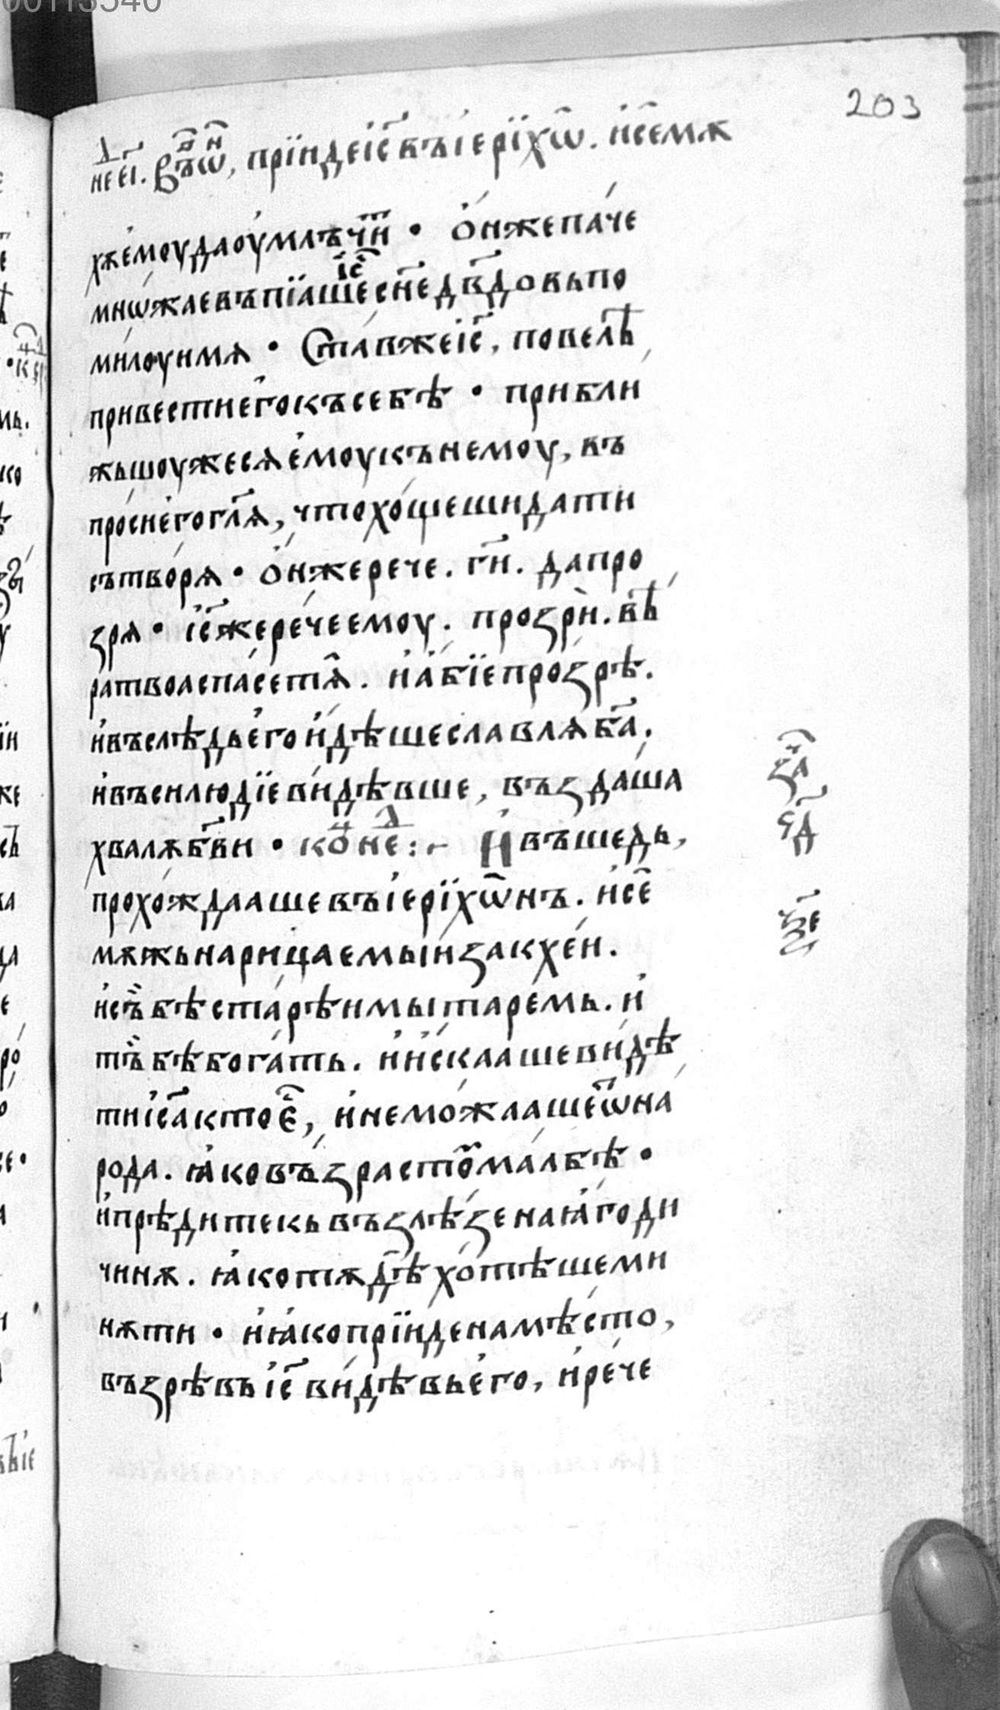 203
нед еі҃. въ ѡн, прїиде і҃с въ іерїхѡ. и҆ се мѫ
хѫ емоу да оумлъчит • ѻнже паче
мнѡжае въпїаше і҃се сн҃е дв҃довь по
милоуи мѧ • Ставже і҃с, повелѣ
привести его къ себѣ • прибли
жьшоужесѧ емоу къ немоу, въ
проси его гл҃ѧ, что хощеши да ти
сътворѧ • ѻнже рече. ги҃. да про
зрѧ • і҃сже рече емоу. прозри. вѣ
ра твоа спасе тѧ. и абїе прозрѣ.
и въслѣдь его идѣше славлѧ ба҃.
и въси людїе видѣвше, въздаша
хвалѫ бв҃и • конⷰ нед :~ И въшедь,
прохождааше въ іерїхѡнъ. и се
мѫжь нарицаемыи закхеи.
и съ бѣ старѣи мытаремь. и
тъ бѣ богать. и искааше видѣ
ти і҃са кто е, и не можааше ѿ на
рода. ꙗко възрастом маль бѣ •
и прѣди текь възлѣзе на ꙗгоди
чинѫ. ꙗко тѫдѣ хотѣше ми
нѫти • и ꙗко прїиде на мѣсто,
възрѣвь і҃с видѣвь его, и рече
за҃
ч҃д
ч҃е